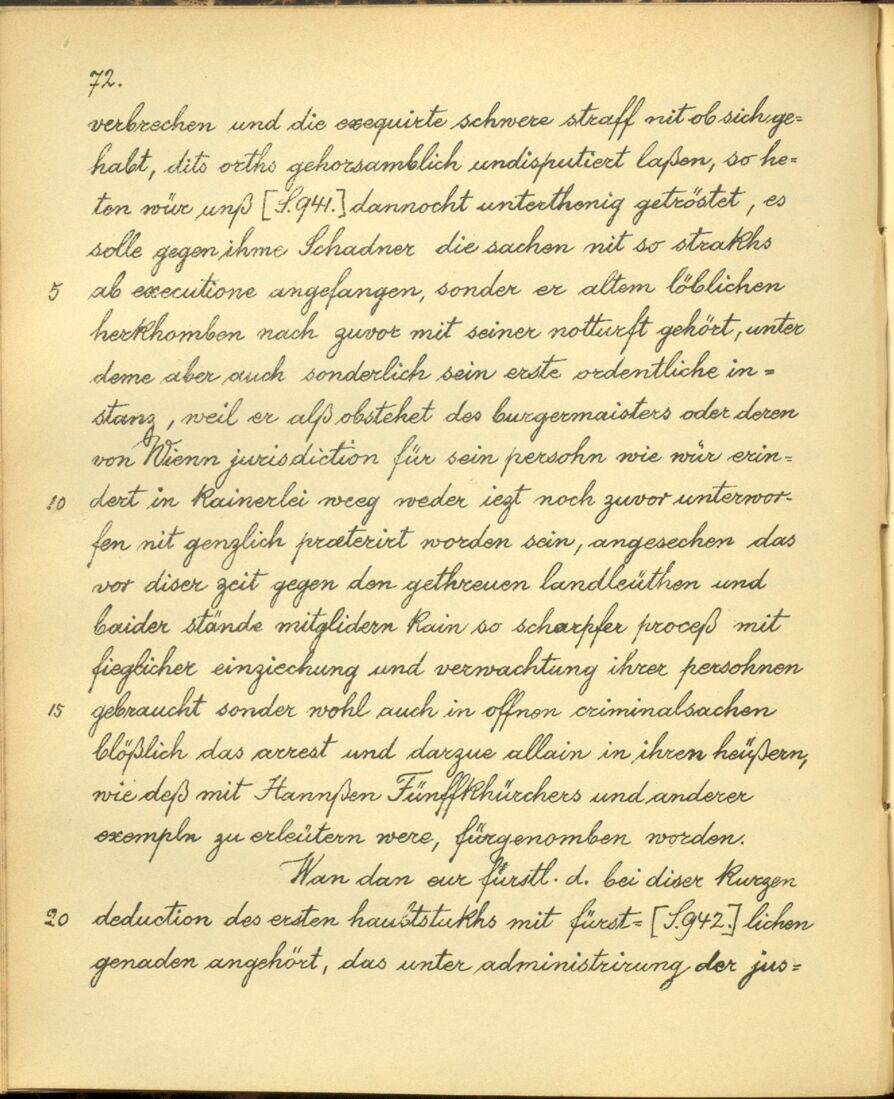 72.
verbrechen und die exequirte schwere straff nit ob sich ge=
habt, dits orths gehorsamblich undisputiert laßen, so he=
ten wür unß [S.941.] dannocht unterthenig getröstet, es
solle gegen ihme Schadner die sachen nit so strakhs
5 ab executione angefangen, sonder er altem löblichen
herkhomben nach zuvor mit seiner notturft gehört, unter
deme aber auch sonderlich sein erste ordentliche in=
stanz, weil er alß obstehet des burgermaisters oder deren
von Wienn jurisdiction für sein persohn wie wür erin=
10 dert in kainerlei weeg weder iezt noch zuvor unterwor=
fen nit genzlich præterirt worden sein, angesechen das
vor diser zeit gegen den gethreuen landleüthen und
baider stände mitglidern kain so scharpfer proceß mit
fieglicher einziechung und verwachtung ihrer persohnen
15 gebraucht sonder wohl auch in offnen criminalsachen
blößlich das arrest und darzue allain in ihren heüßern,
wie deß mit Hannßen Fünffkhürchers und anderer
exempln zu erleütern were, fürgenomben worden.
Wan dan eur fürstl. d. bei diser kurzen
20 deduction des ersten haubtstukhs mit fürst= [S.942.] lichen
genaden angehört, das unter administrirung der jus=